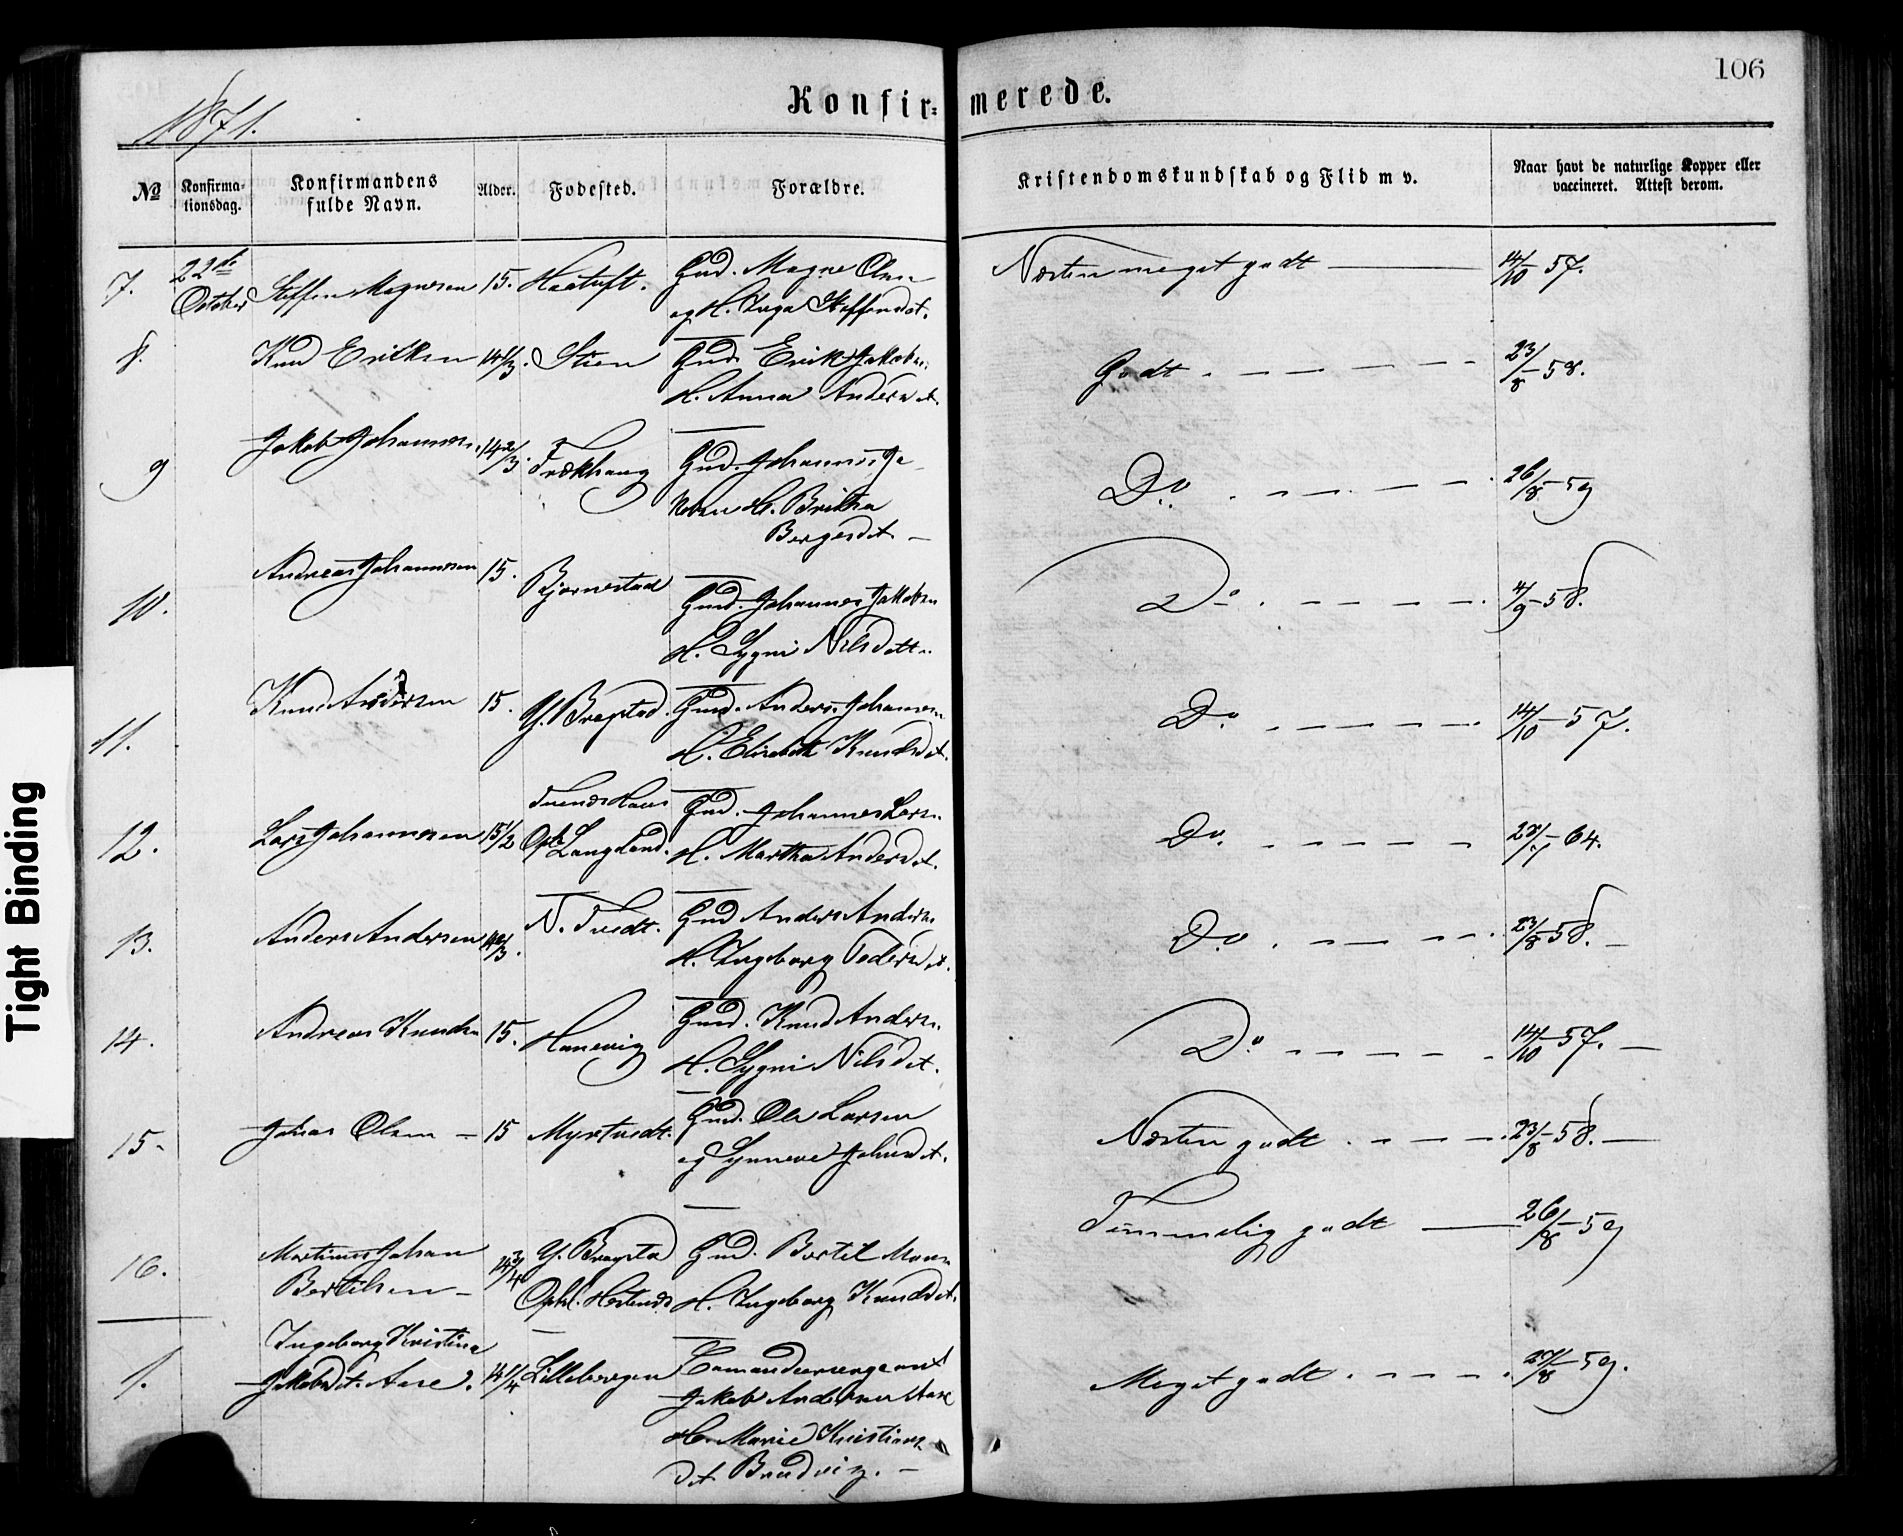 106
1871.
Konfirmerede.
No
Konfirma-
tionsdag.
Konfirmandens
fulde Navn.
Alder.
Fødested.
Forældre.
Kristendomskundskab og Flid m v.
Naar havt de naturlige Kopper eller
vaccineret. Attest derom.
7. 22de October Steffen Magnesen 15. Haatuft. Gmd. Magne Olsen
og H. Inga Steffensdt.
Næsten meget godt 14/10 57.
8. Knud Eriksen 14 1/3. Stien Gmd. Erik Jakobsen
H. Anna Andersdt.
Godt 23/8 58.
9 Jakob Johannesen 14 2/3. Trækhaug Gmd. Johannes Ja
kobsen H. Britha
Bergesdt.
Do 26/8 59
10. Andreas Johannesen 15. Bjørnestad Gmd. Johannes Jakobsen
H. Sygni Nilsdatt.
Do 4/9 58.
11. Knud Andersen 15. Y. Bragstad. Gmd. Anders Johannesen
H. Elisabeth Knudsdt.
Do 14/10 57.
12. Lars Johannesen 15 1/2 Langeland. Gmd. Johannes Larsen
H. Martha Andersdt.
Do 64.
13. Anders Andersen 14 2/3. N. Tvedt. Gmd Anders Andersen
H. Ingeborg Pedersdt.
Do 23/8 58.
14. Andreas Knudsen 15. Hanevig Gmd. Knud Andersen
H. Sygni Nilsdt.
Do 14/10 57.
15. Johan Olsen 15 Myrtvedt. Gmd. Ole Larsen
og Synneve Johnsdt.
Næsten godt 23/8 58.
16. Martinus Johan
Bertilsen 14 3/4 Y. Bragsta Gmd. Bertil Mons
Opl. H. Ingeborg Knudsdt.
Temmelig godt 26/8 59
1. Ingeborg Kristine
Jakobsdt. Aase. 14 1/4 Lillebergen Comandeersergeant
Jakob Andersen Aase
H. Marie Kristians
dt. Brudvig.
Meget godt 27/8 59.
Tight Binding